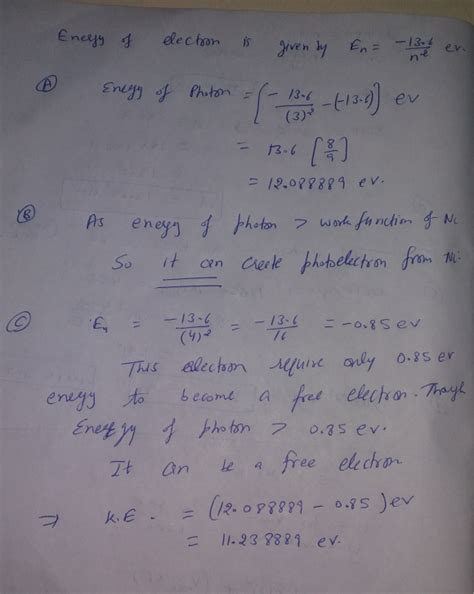 Energy of electron is given by En = -13.6/n² ev.
(A) Energy of Photon = [-13.6/(3)² - (-13.6)] ev
= 13.6 [8/9]
= 12.088889 ev.
(B) As energy of photon > work function of Ni
So it can create photoelectron from Ni.
(C) E4 = -13.6/(4)² = -13.6/16 = -0.85 ev
This electron require only 0.85 ev
energy to become a free electron. Though
Energy of photon > 0.85 ev.
It can be a free electron
⇒ K.E. = (12.088889 - 0.85) ev
= 11.238889 ev.